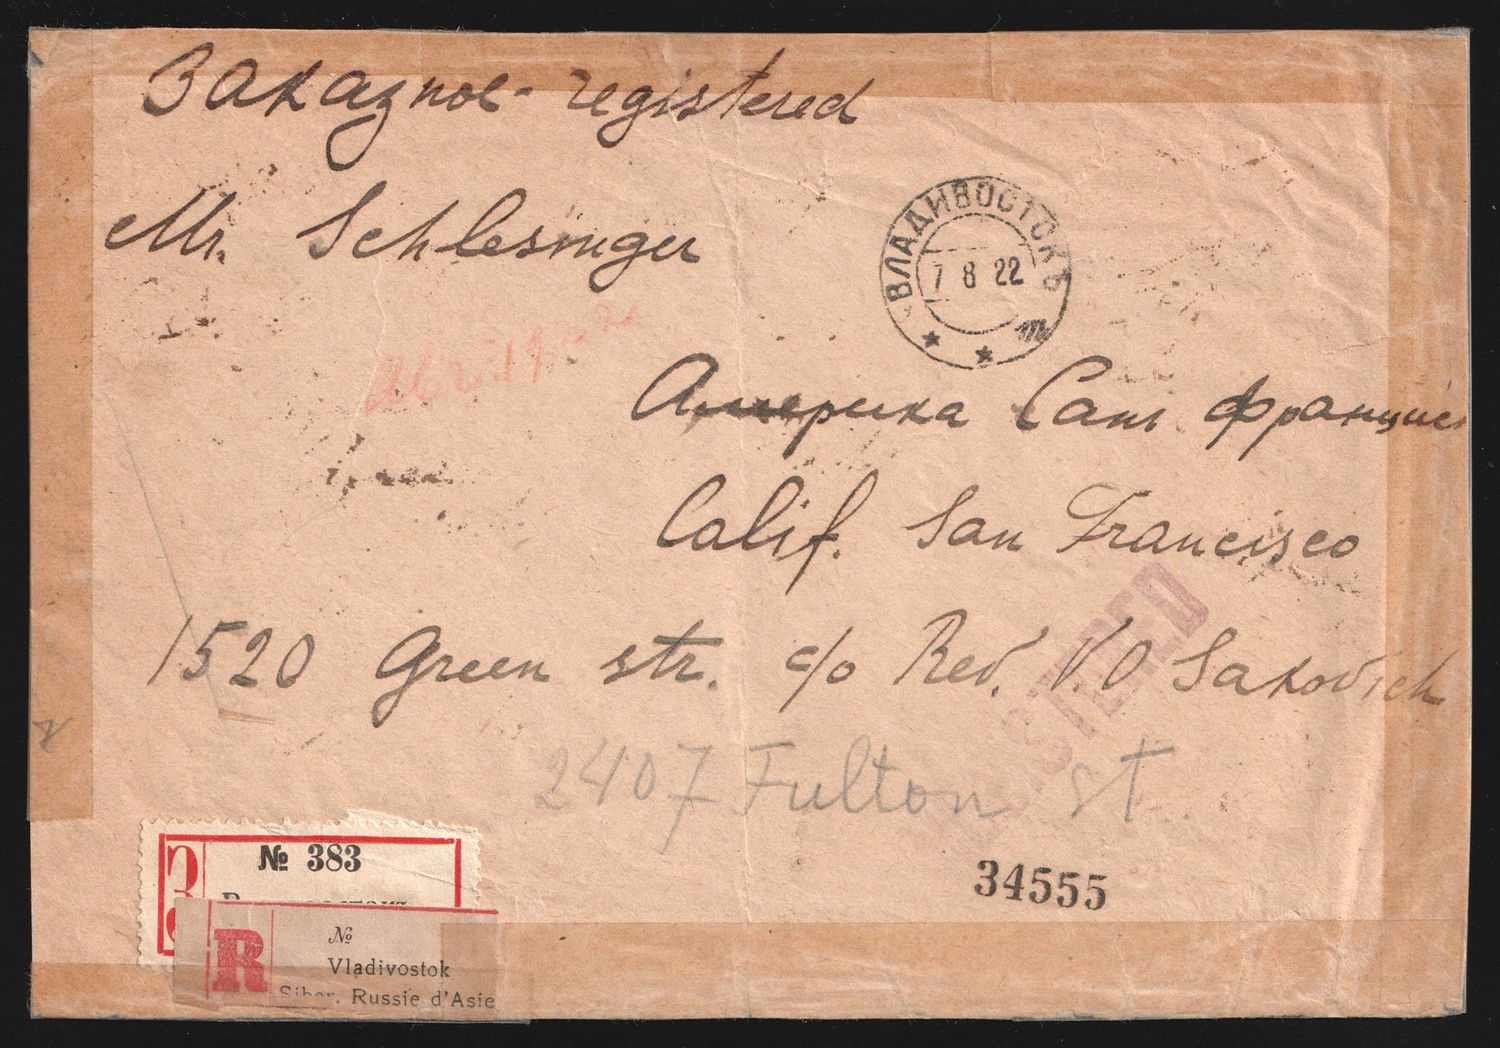 Заказное - registered
Mr. Schlesinger
ВЛАДИВОСТОКЪ
7 8 22
1922
Америка Санъ Францис
Calif. San Francisco
1520 Green str. c/o Rev. V. O Sakovich
REGISTERED
2407 Fulton st.
34555
З
№ 383
R
№
Vladivostok
Siber. Russie d'Asie